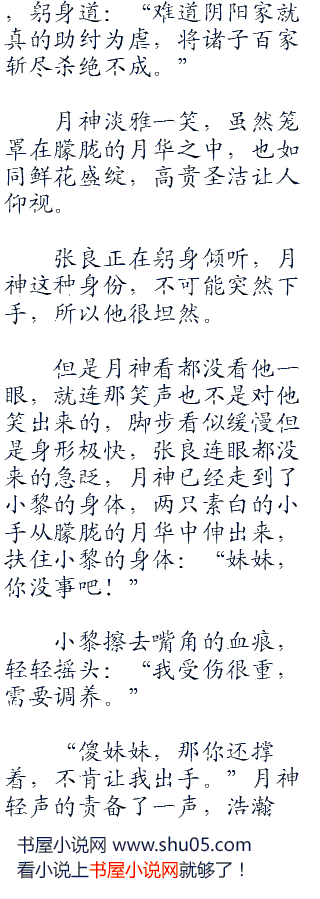 ，躬身道：“难道阴阳家就
真的助纣为虐，将诸子百家
斩尽杀绝不成。”
月神淡雅一笑，虽然笼
罩在朦胧的月华之中，也如
同鲜花盛绽，高贵圣洁让人
仰视。
张良正在躬身倾听，月
神这种身份，不可能突然下
手，所以他很坦然。
但是月神看都没看他一
眼，就连那笑声也不是对他
笑出来的，脚步看似缓慢但
是身形极快，张良连眼都没
来的急眨，月神已经走到了
小黎的身体，两只素白的小
手从朦胧的月华中伸出来，
扶住小黎的身体：“妹妹，
你没事吧！”
小黎擦去嘴角的血痕，
轻轻摇头：“我受伤很重，
需要调养。”
“傻妹妹，那你还撑
着，不肯让我出手。”月神
轻声的责备了一声，浩瀚
书屋小说网 www.shu05.com
看小说上书屋小说网就够了！